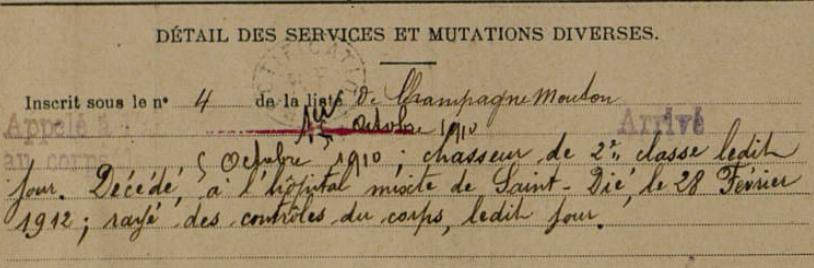 DÉTAIL DES SERVICES ET MUTATIONS DIVERSES.
Inscrit sous le nº 4 de la liste De Champagne Mouton
Appelé à 1er octobre 1910 Arrivé
au corps 5 Octobre 1910 ; chasseur de 2e classe ledit
jour. Décédé, à l'hôpital mixte de Saint-Dié, le 28 Février
1912 ; rayé des contrôles du corps, ledit jour.